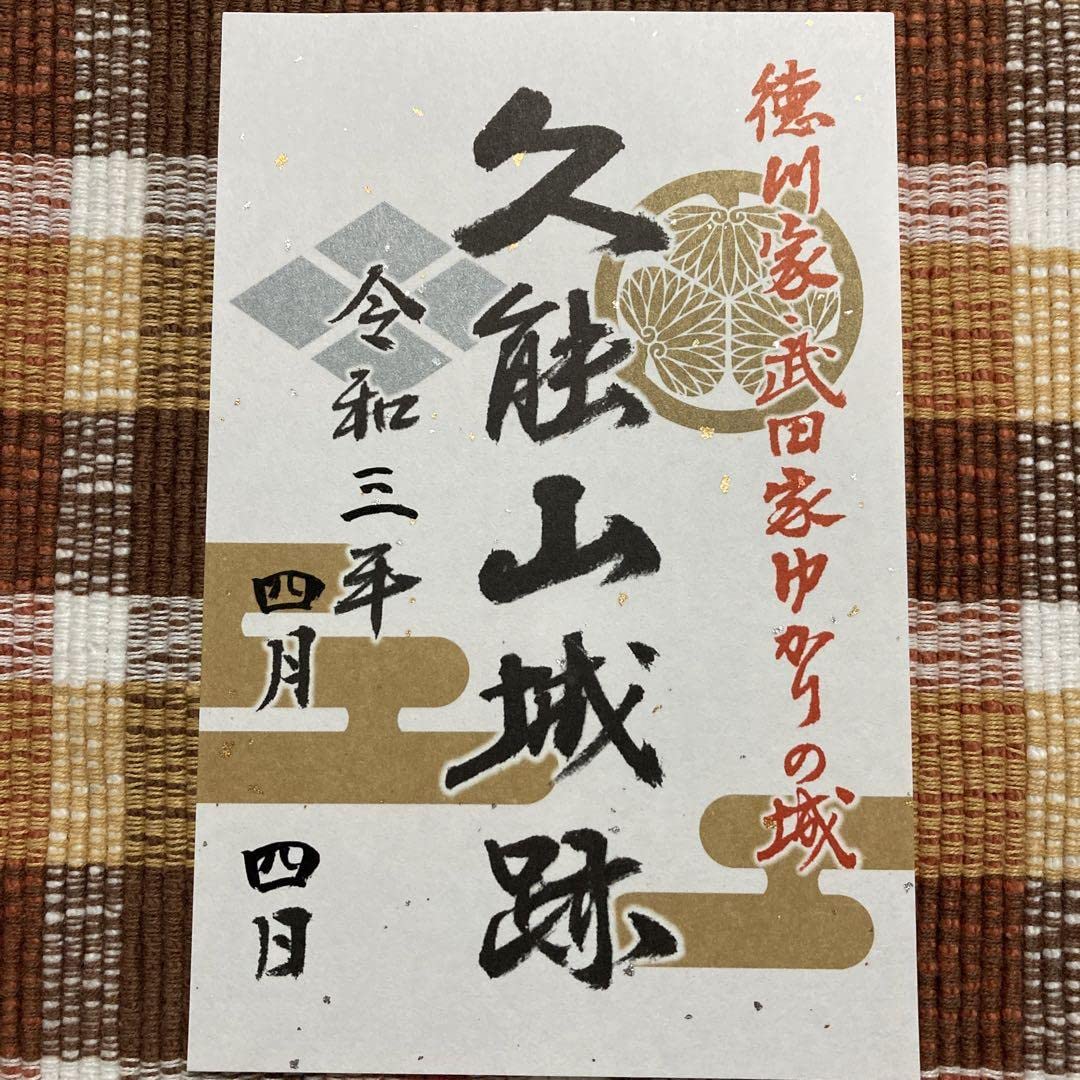 徳川家・武田家ゆかりの城
久能山城跡
令和三年
四月
四日